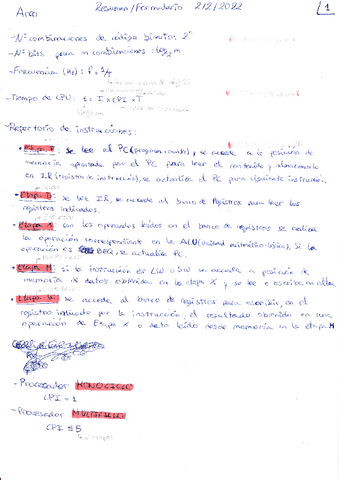 Arco Resumen/Formulario 2/2/2022 1
-Nº combinaciones de código binario: 2ⁿ
-Nº bits para m combinaciones: log₂m
-Frecuencia (Hz): f = 1/T
-Tiempo de CPU: t = I × CPI × T
-Repertorio de instrucciones:
• Etapa F: se lee el PC (program counter) y se accede a la posición de
memoria apuntada por el PC para leer el contenido y almacenarlo
en IR (registro de instrucción), se actualiza el PC para siguiente instrucción.
• Etapa D: se lee IR, se accede al banco de registros para leer los
registros indicados.
• Etapa X: con los operandos leídos en el banco de registros se realiza
la operación correspondiente en la ALU (unidad aritmético-lógica). Si la
operación es BEQ, se actualiza PC.
• Etapa M: si la instrucción es LW o SW se accede a posición de
memoria de datos obtenida en la etapa X, y se lee o escribe en ella.
• Etapa W: se accede al banco de registros para escribir, en el
registro indicado por la instrucción, el resultado obtenido en una
operación de Etapa X o dato leído desde memoria en la etapa M
-Procesador MONOCICLO
CPI = 1
-Procesador MULTICICLO
CPI ≤ 5